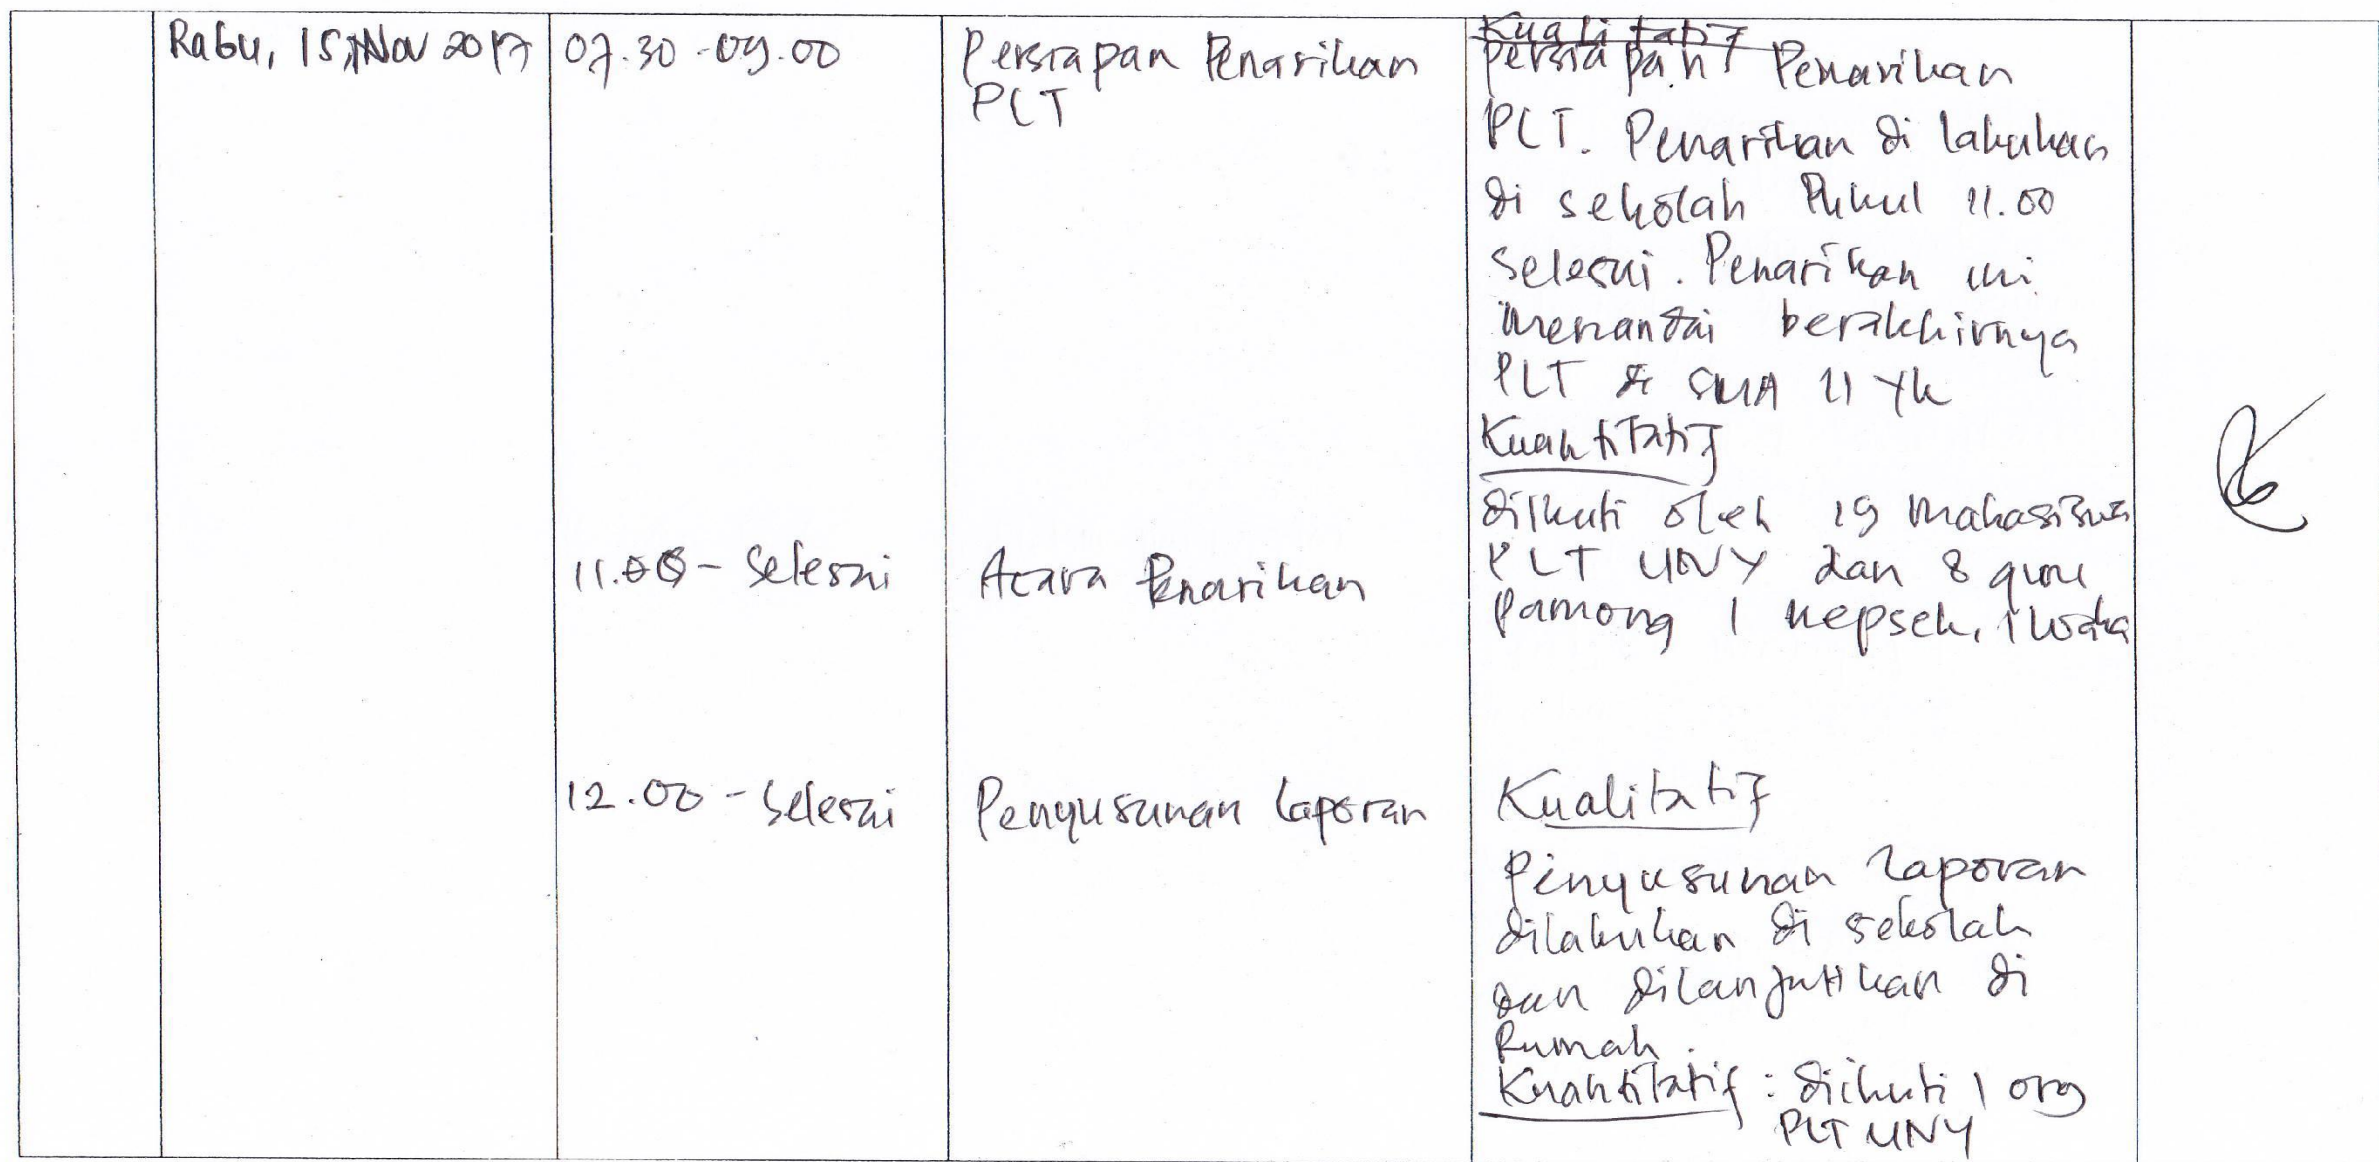 Rabu, 15 Nov 2017
07.30 - 09.00
Persiapan Penarikan
PLT
Kualitatif
Persiapan Penarikan
PLT. Penarikan di lakukan
di sekolah Pukul 11.00
Selesai. Penarikan ini
menandai berakhirnya
PLT di SMA 11 Yk
Kuantitatif
diikuti oleh 19 mahasiswa
PLT UNY dan 8 guru
Pamong 1 kepsek, 1 waka
11.00 - Selesai
Acara Penarikan
12.00 - Selesai
Penyusunan laporan
Kualitatif
Penyusunan laporan
dilakukan di sekolah
dan dilanjutkan di
Rumah.
Kuantitatif : diikuti 1 org
PLT UNY